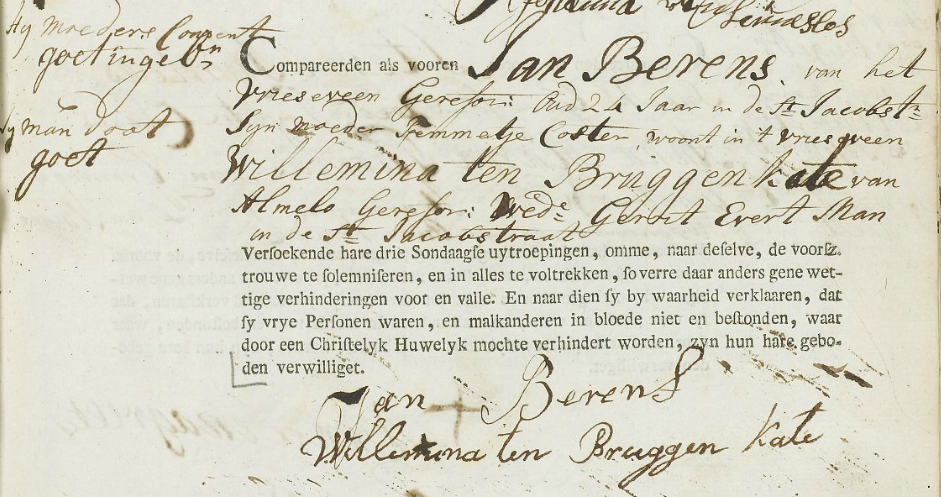 Hy moeders Consent
goet ingebn
Sy man doot
goet
Compareerden als vooren Jan Berens van het
Vrieseveen Gerefor: Oud 24 Jaar in de St Jacobst
Syn moeder Femmetje Coster, woont in 't vrieseveen
Willemina ten Bruggen kate van
Almelo Gerefor: Wede Gerrit Evert Man
in de St Jacobstraat
Versoekende hare drie Sondaagse uytroepingen, omme, naar deselve, de voorsz.
trouwe te solemniseren, en in alles te voltrekken, so verre daar anders gene wet-
tige verhinderingen voor en valle. En naar dien sy by waarheid verklaaren, dat
sy vrye Personen waren, en malkanderen in bloede niet en bestonden, waar
door een Christelyk Huwelyk mochte verhindert worden, zyn hun hare gebo-
den verwilliget.
Jan Berens
Willemina ten Bruggen Kate